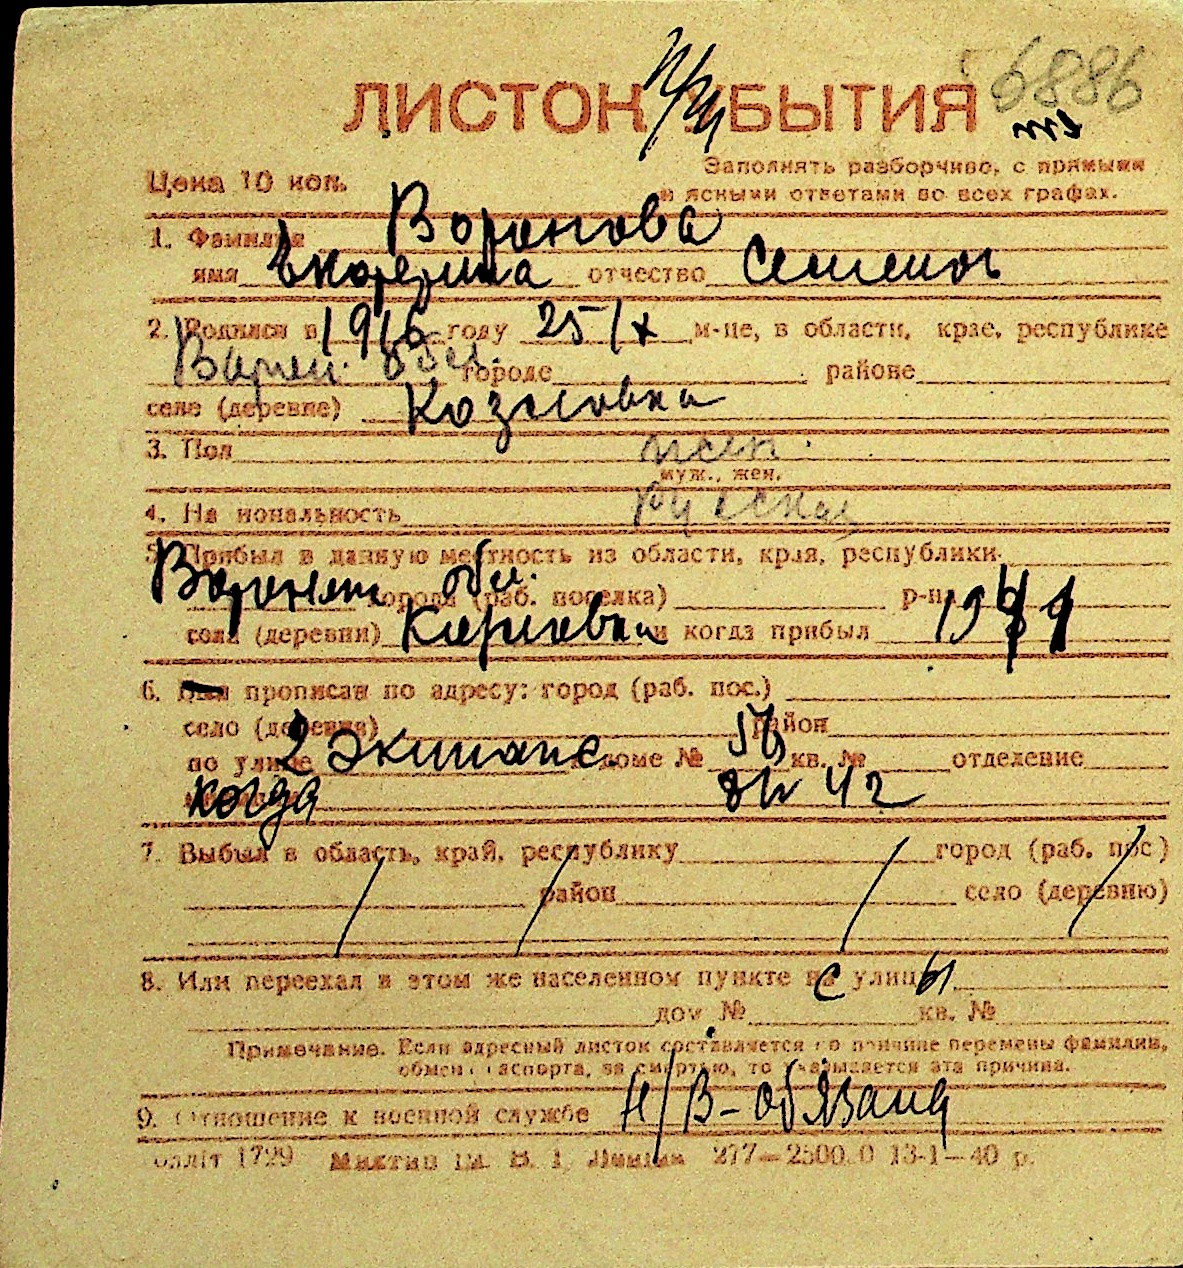 6886
ЛИСТОК УБЫТИЯ
Цена 10 коп. Заполнять разборчиво, с прямыми
и ясными ответами во всех графах.
1. Фамилия Воронова
имя отчество Семенов
2. Родился в 1916 году 25/IX м-це, в области, крае, республике
обл. городе районе
селе (деревне)
3. Пол жен.
муж., жен.
4. Национальность русская
5. Прибыл в данную местность из области, края, республики
обл. города (раб. поселка) р-на
села (деревни) и когда прибыл
6. прописан по адресу: город (раб. пос.)
село (деревня) район
по улице 2 доме № кв. № отделение
когда 42
7. Выбыл в область, край, республику город (раб. пос)
район село (деревню)
8. Или переехал в этом же населенном пункте с улицы
дом № кв. №
Примечание. Если адресный листок составляется по причине перемены фамилии,
обмена паспорта, за смертью, то указывается эта причина.
9. Отношение к военной службе н/в-обязана
1729 277—2500.0 13-1—40 р.